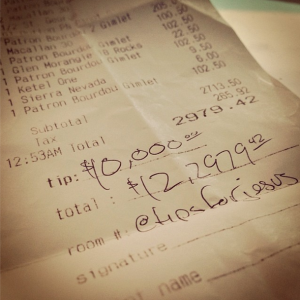 Patron Bourdou Gimlet
Macallan
1 Glen Morangie Rocks
1 Patron Bourdou Gimlet 102.50
1 Ketel One 9.50
1 Sierra Nevada 6.00
1 Patron Bourdou Gimlet 102.50
Subtotal 2713.50
Tax 265.92
12:53AM Total 2979.42
tip: $10,000 00
total: $12,979 42
room #: @tipsforjesus
signature
name